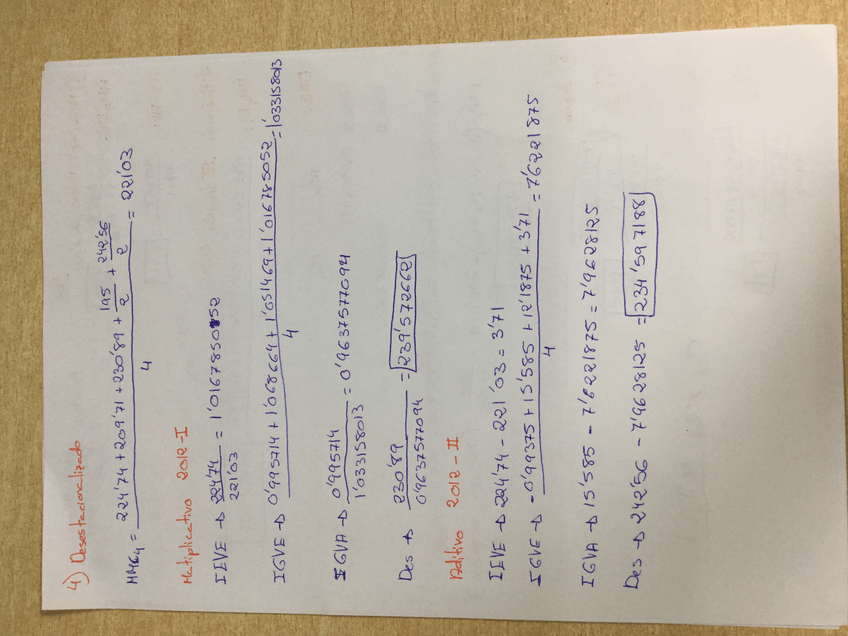 4) Desestacionalizado
MMC4 = (224'74 + 209'71 + 230'89 + 195/2 + 242'56/2) / 4 = 221'03
Multiplicativo 2012-I
IEVE → 224'74 / 221'03 = 1'016785052
IGVE → (0'995714 + 1'068664 + 1'051469 + 1'016785052) / 4 = 1'033158013
IGVA → 0'995714 / 1'033158013 = 0'9637577094
Des → 230'89 / 0'9637577094 = 239'572662
Aditivo 2012-II
IEVE → 224'74 - 221'03 = 3'71
IGVE → (-0'99375 + 15'585 + 12'1875 + 3'71) / 4 = 7'6221875
IGVA → 15'585 - 7'6221875 = 7'9628125
Des → 242'56 - 7'9628125 = 234'597188